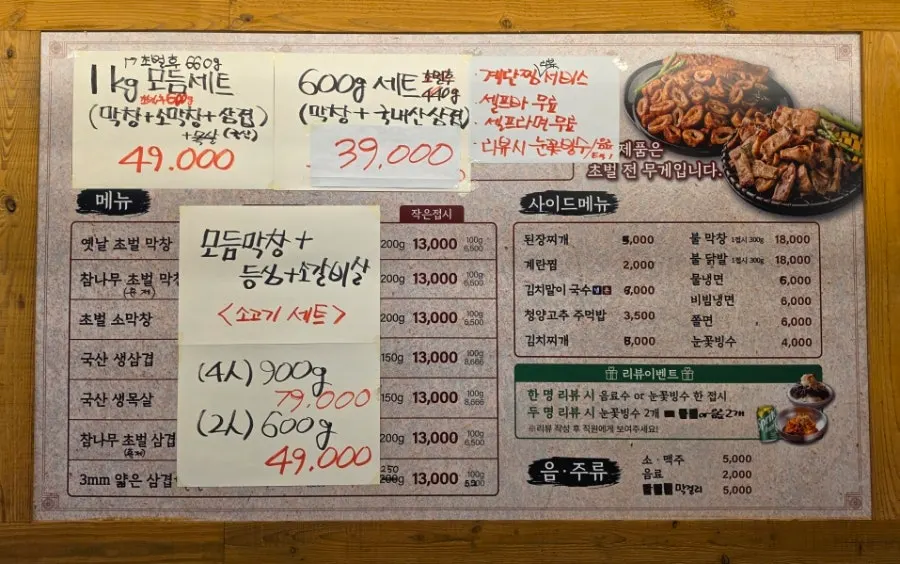 초벌후 660g
1kg 모듬세트
초벌후 600g
(막창+소막창+삼겹)
+목살 (국산)
49.000
600g 세트 초벌후 440g
(막창+국내산삼겹)
39.000
· 계란찜 서비스
· 셀프바 무료
· 셀프라면 무료
· 리뷰시 눈꽃빙수/음료
제품은
초벌 전 무게입니다.
메뉴
작은접시
옛날 초벌 막창 200g 13,000 100g 6,500
참나무 초벌 막창 200g 13,000 100g 6,500
초벌 소막창 200g 13,000 100g 6,500
국산 생삼겹 150g 13,000 100g 8,666
국산 생목살 150g 13,000 100g 8,666
참나무 초벌 삼겹 200g 13,000 100g 6,500
3mm 얇은 삼겹 250 200g 13,000 100g
모듬막창+
등심+소갈비살
<소고기 세트>
(4人) 900g
79.000
(2人) 600g
49.000
사이드메뉴
된장찌개 5,000
계란찜 2,000
김치말이 국수 6,000
청양고추 주먹밥 3,500
김치찌개 6,000
불 막창 1접시 300g 18,000
불 닭발 1접시 300g 18,000
물냉면 6,000
비빔냉면 6,000
쫄면 6,000
눈꽃빙수 4,000
리뷰이벤트
한 명 리뷰 시 음료수 or 눈꽃빙수 한 접시
두 명 리뷰 시 눈꽃빙수 2개 or 음료 2개
※리뷰 작성 후 직원에게 보여주세요!
음·주류
소·맥주 5,000
음료 2,000
막걸리 5,000